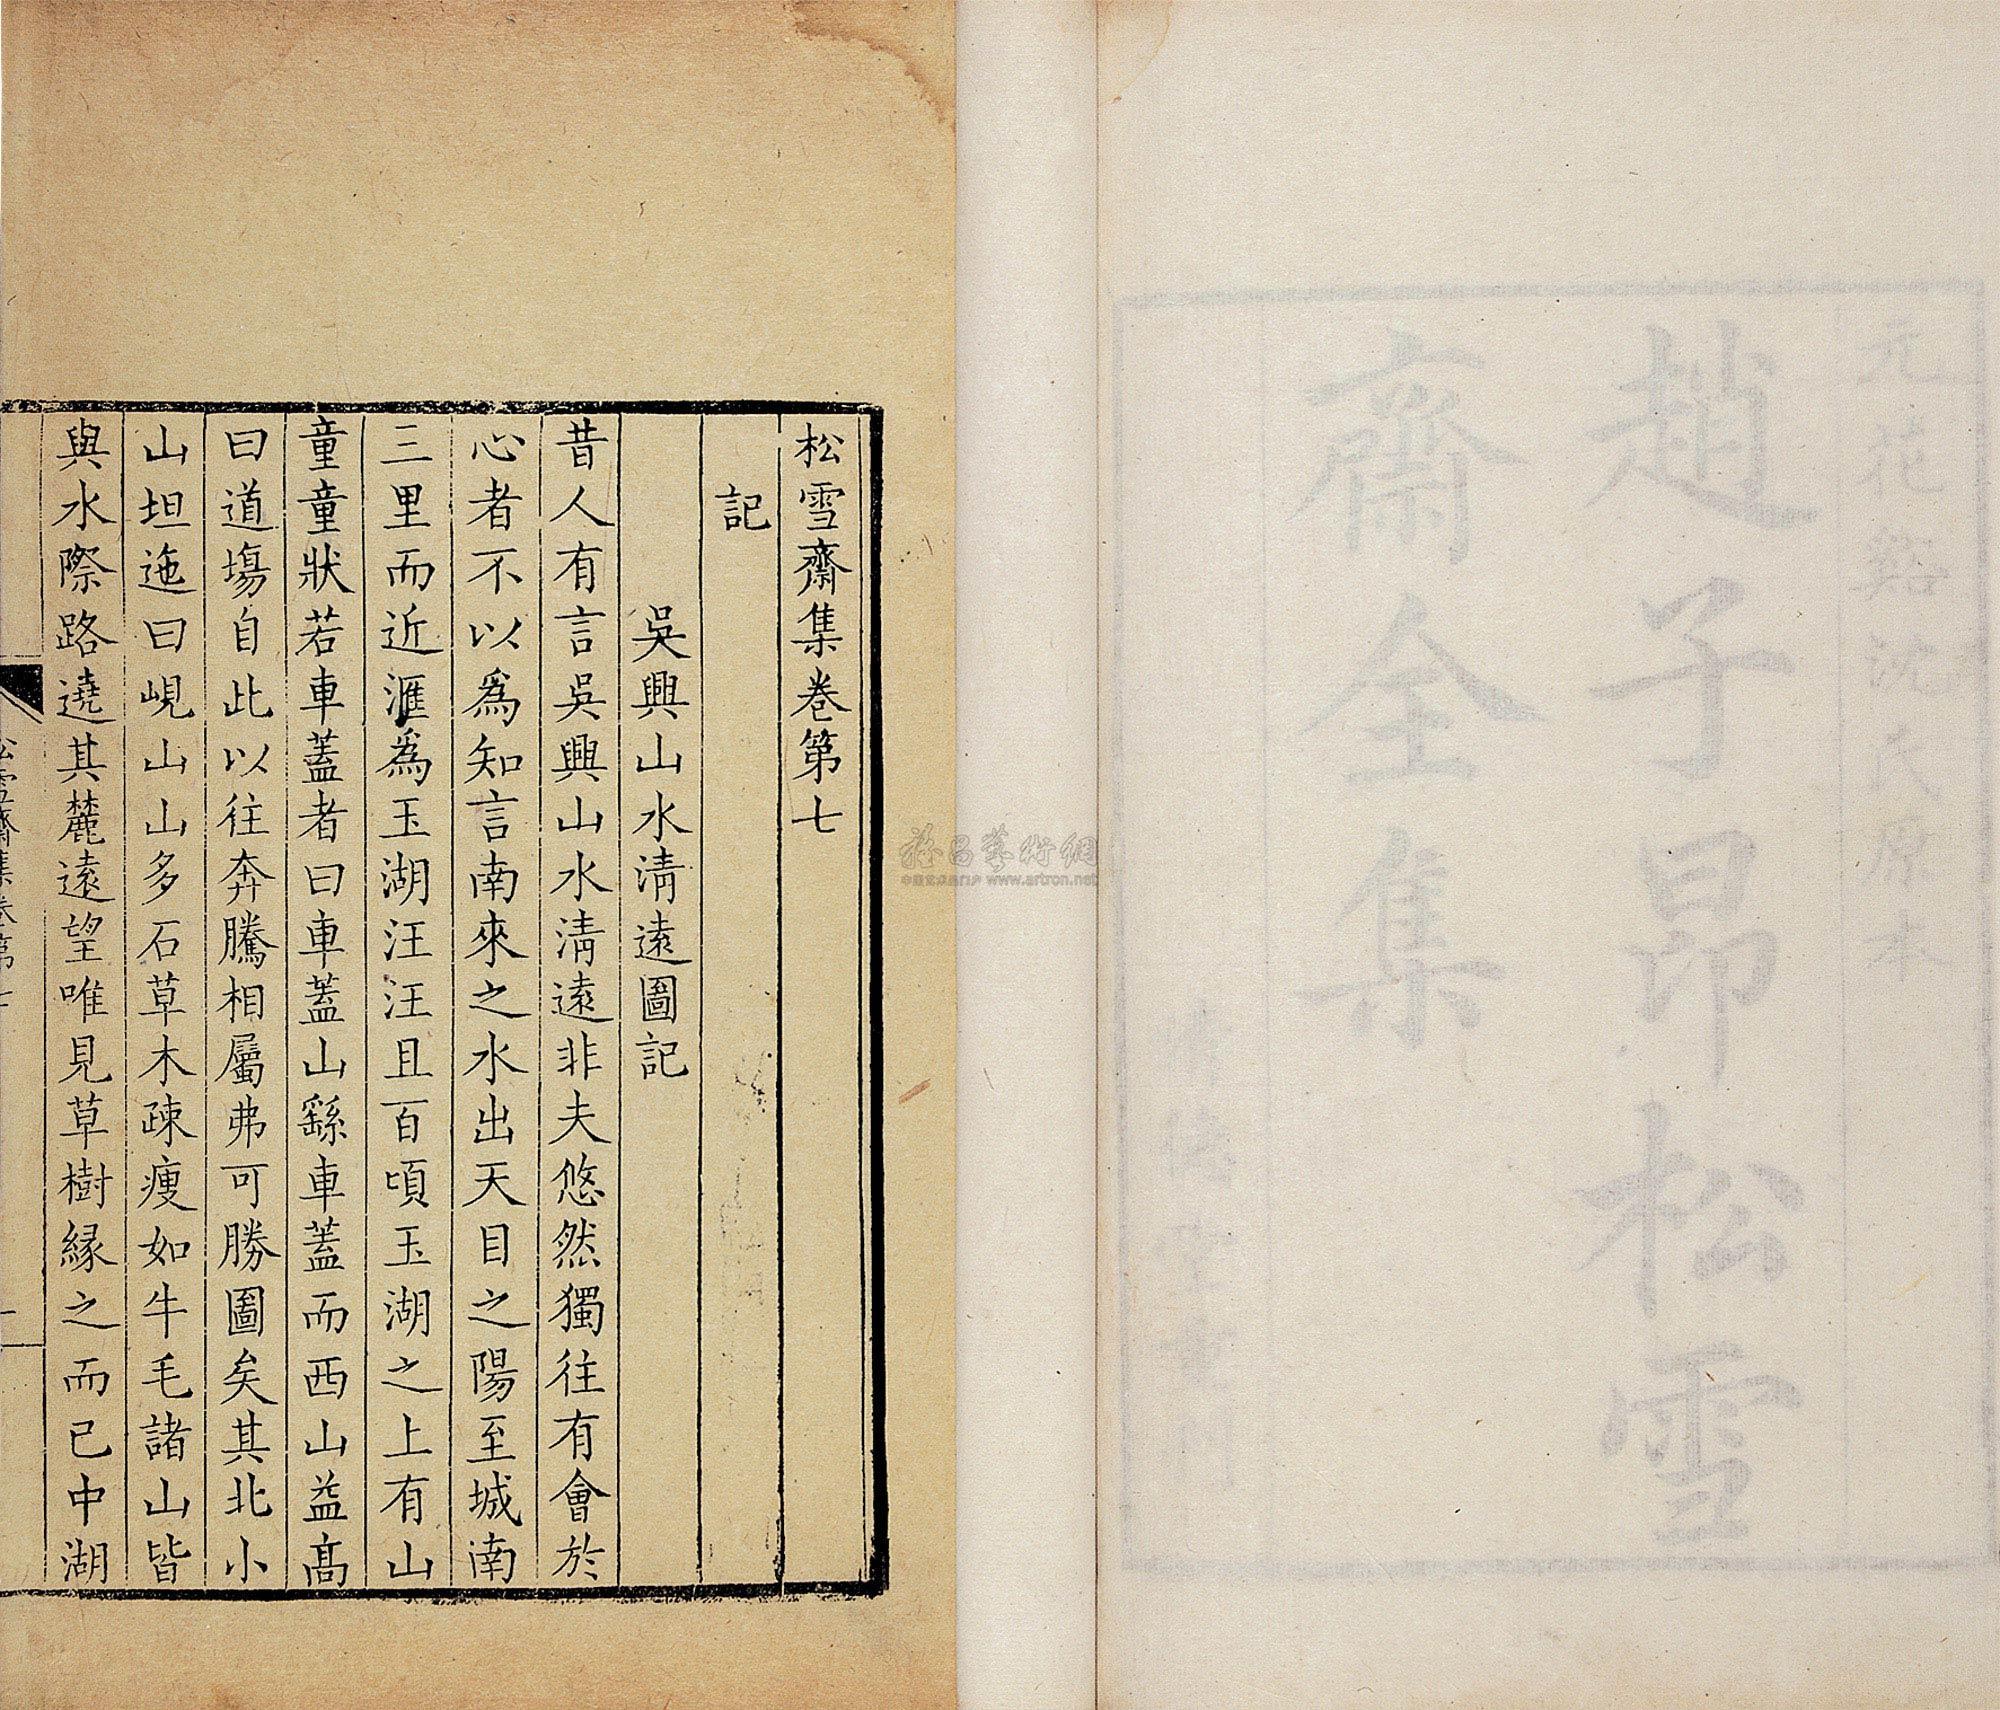 元花谿沈氏原本
趙子昂松雪
齋全集
松雪齋集卷第七
記
吳興山水清遠圖記
昔人有言吳興山水清遠非夫悠然獨往有會於
心者不以爲知言南來之水出天目之陽至城南
三里而近滙爲玉湖汪汪且百頃玉湖之上有山
童童狀若車蓋者曰車蓋山繇車蓋而西山益高
曰道塲自此以往奔騰相屬弗可勝圖矣其北小
山坦迤曰峴山山多石草木疎瘦如牛毛諸山皆
與水際路遶其麓遠望唯見草樹緣之而已中湖
松雪齋集卷第七
www.artron.net